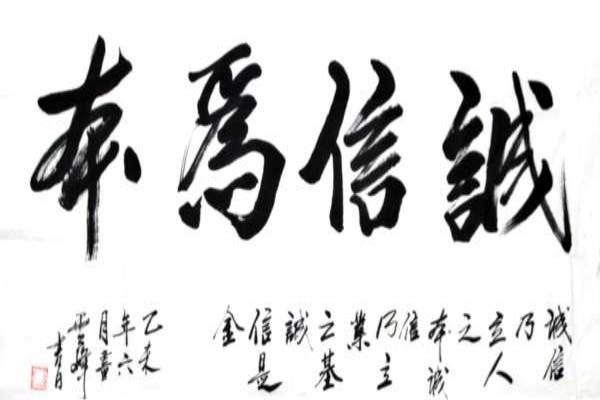 誠信爲本
誠信
乃
立人
之
本誠
信
乃立
業
之基
誠
信是
金
乙未
年六
月